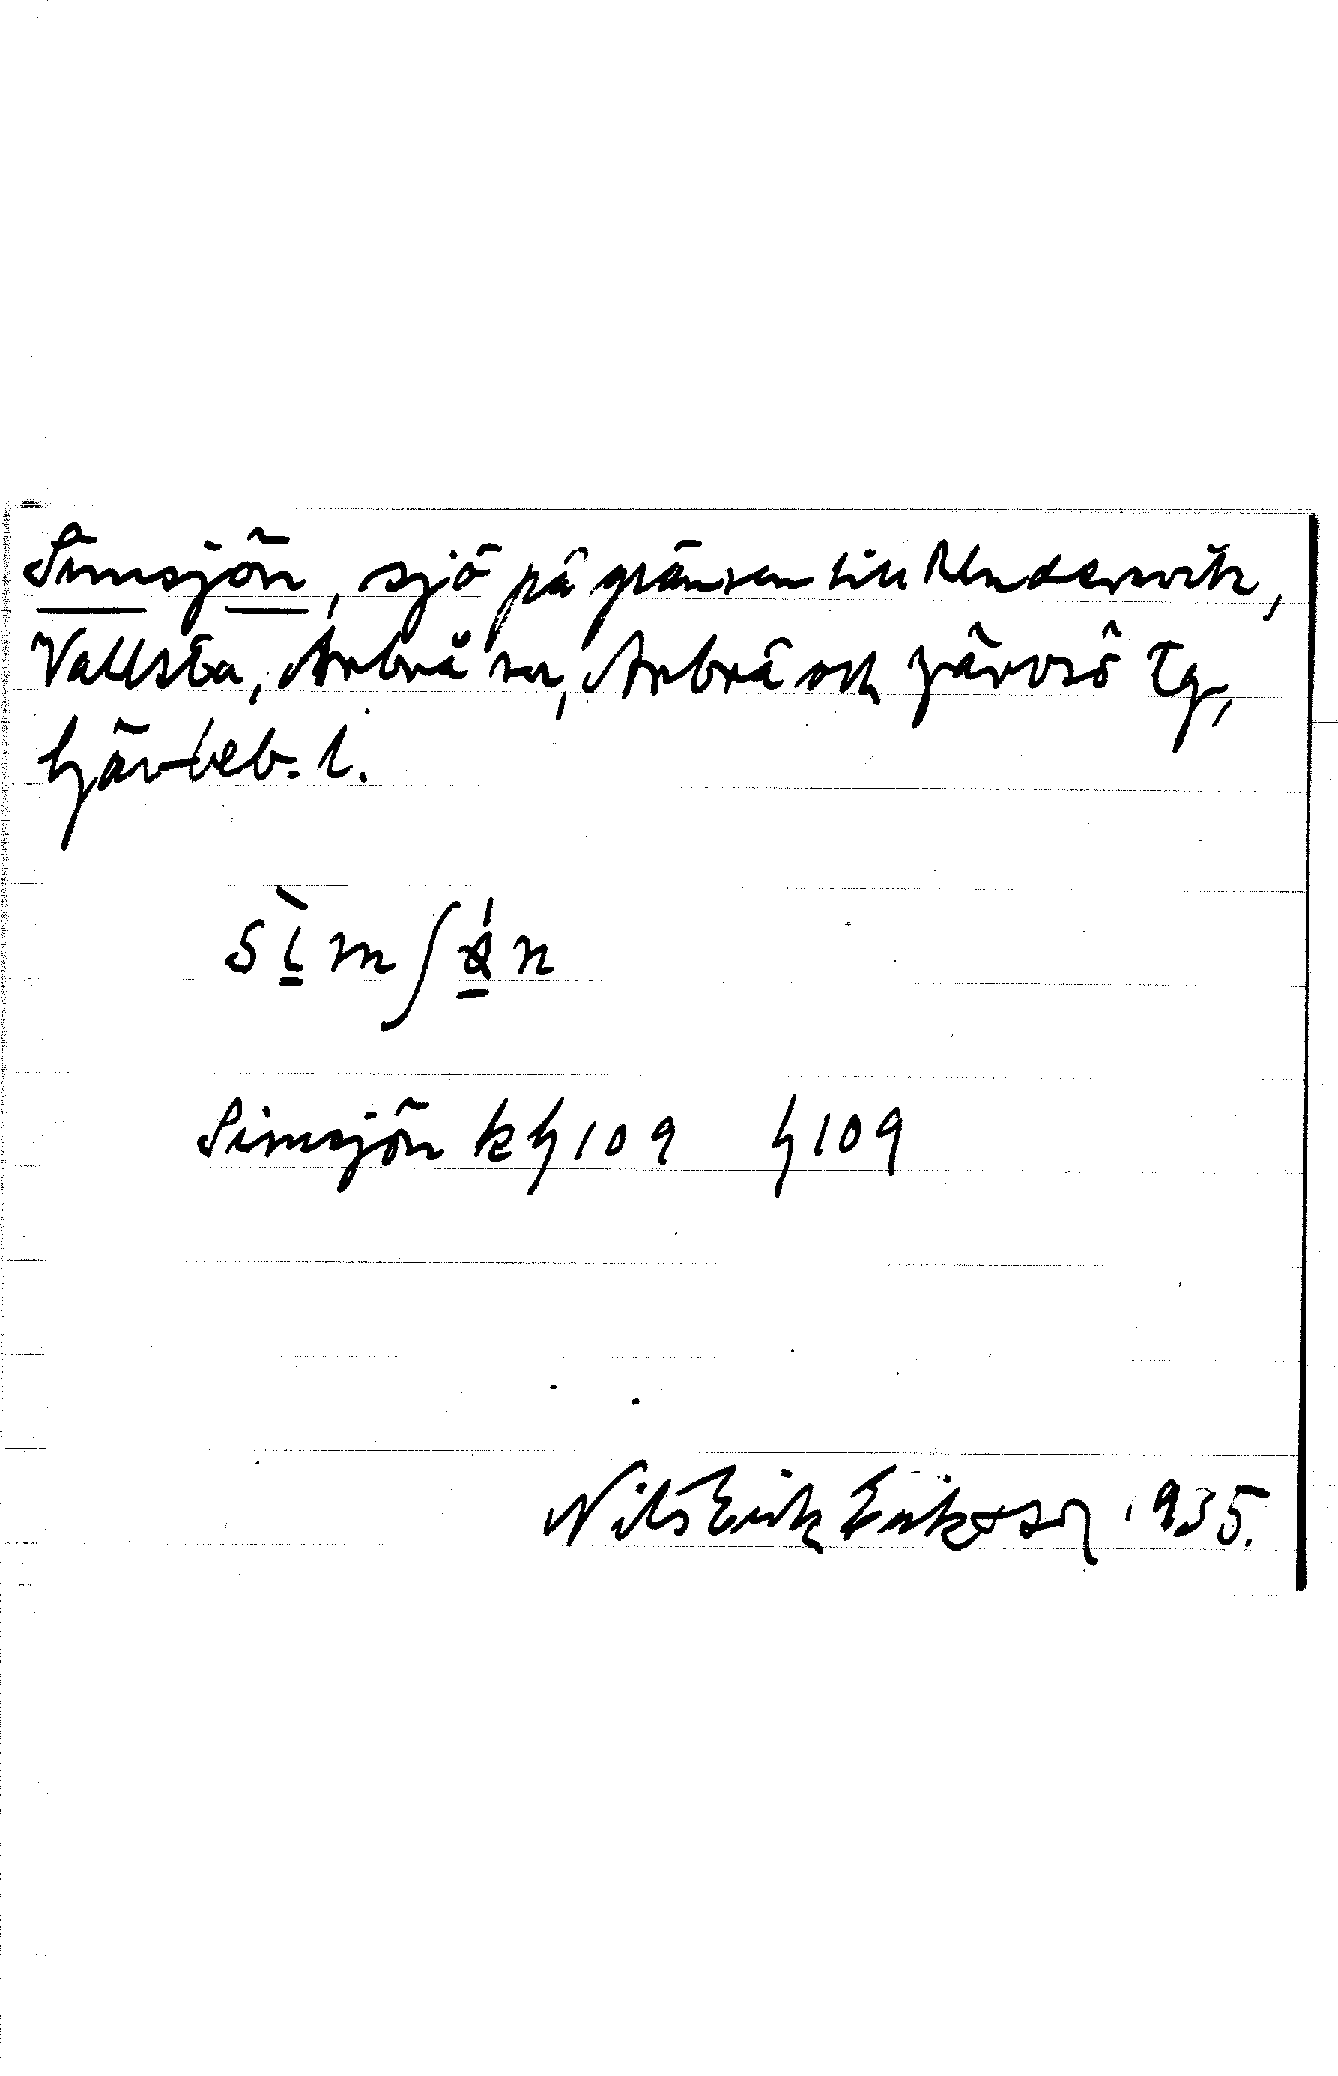 Simsjön, sjö på gränsen till Undersvik,
Vallsta, Arbrå sn, Arbrå och Järvsö tg,
Gävleb. l.
Simsjön kG109 G109
Nils Erik Eriksson 1935.